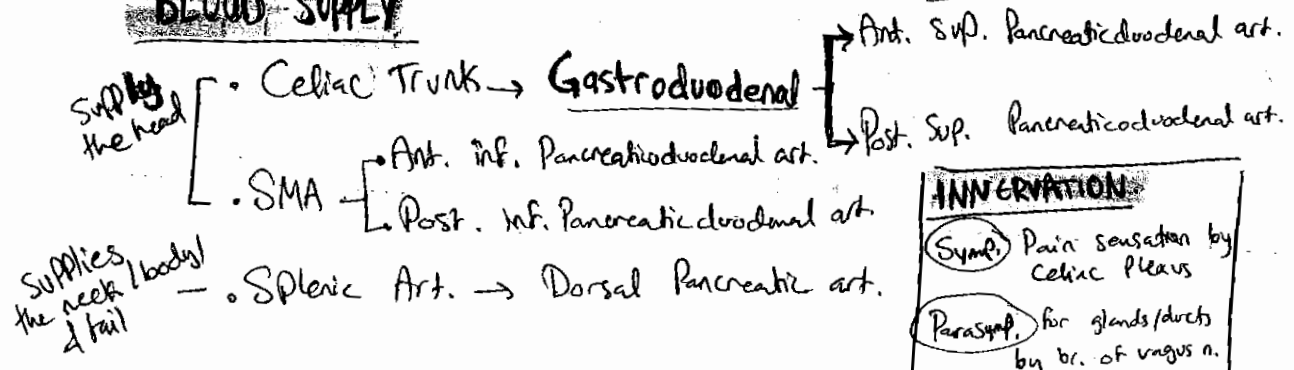 BLOOD SUPPLY
Supply the head
• Celiac Trunk → Gastroduodenal
→ Ant. Sup. Pancreaticduodenal art.
→ Post. Sup. Pancreaticoduodenal art.
• SMA
Ant. inf. Pancreaticoduodenal art.
Post. inf. Pancreaticduodenal art.
Supplies
the neck / body /
& tail
– • Splenic Art. → Dorsal Pancreatic art.
INNERVATION
Symp. Pain sensation by
Celiac Plexus
Parasymp. for glands/ducts
by br. of vagus n.